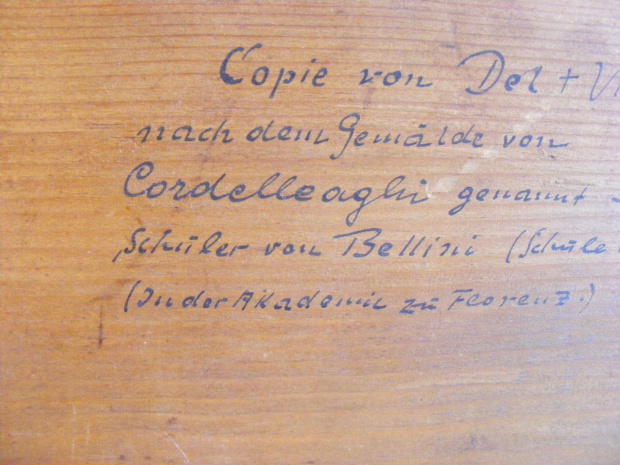 Copie von Del + V
nach dem Gemälde von
Cordelleaghi genannt -
Schüler von Bellini (Schule
(In der Akademie zu Florenz.)